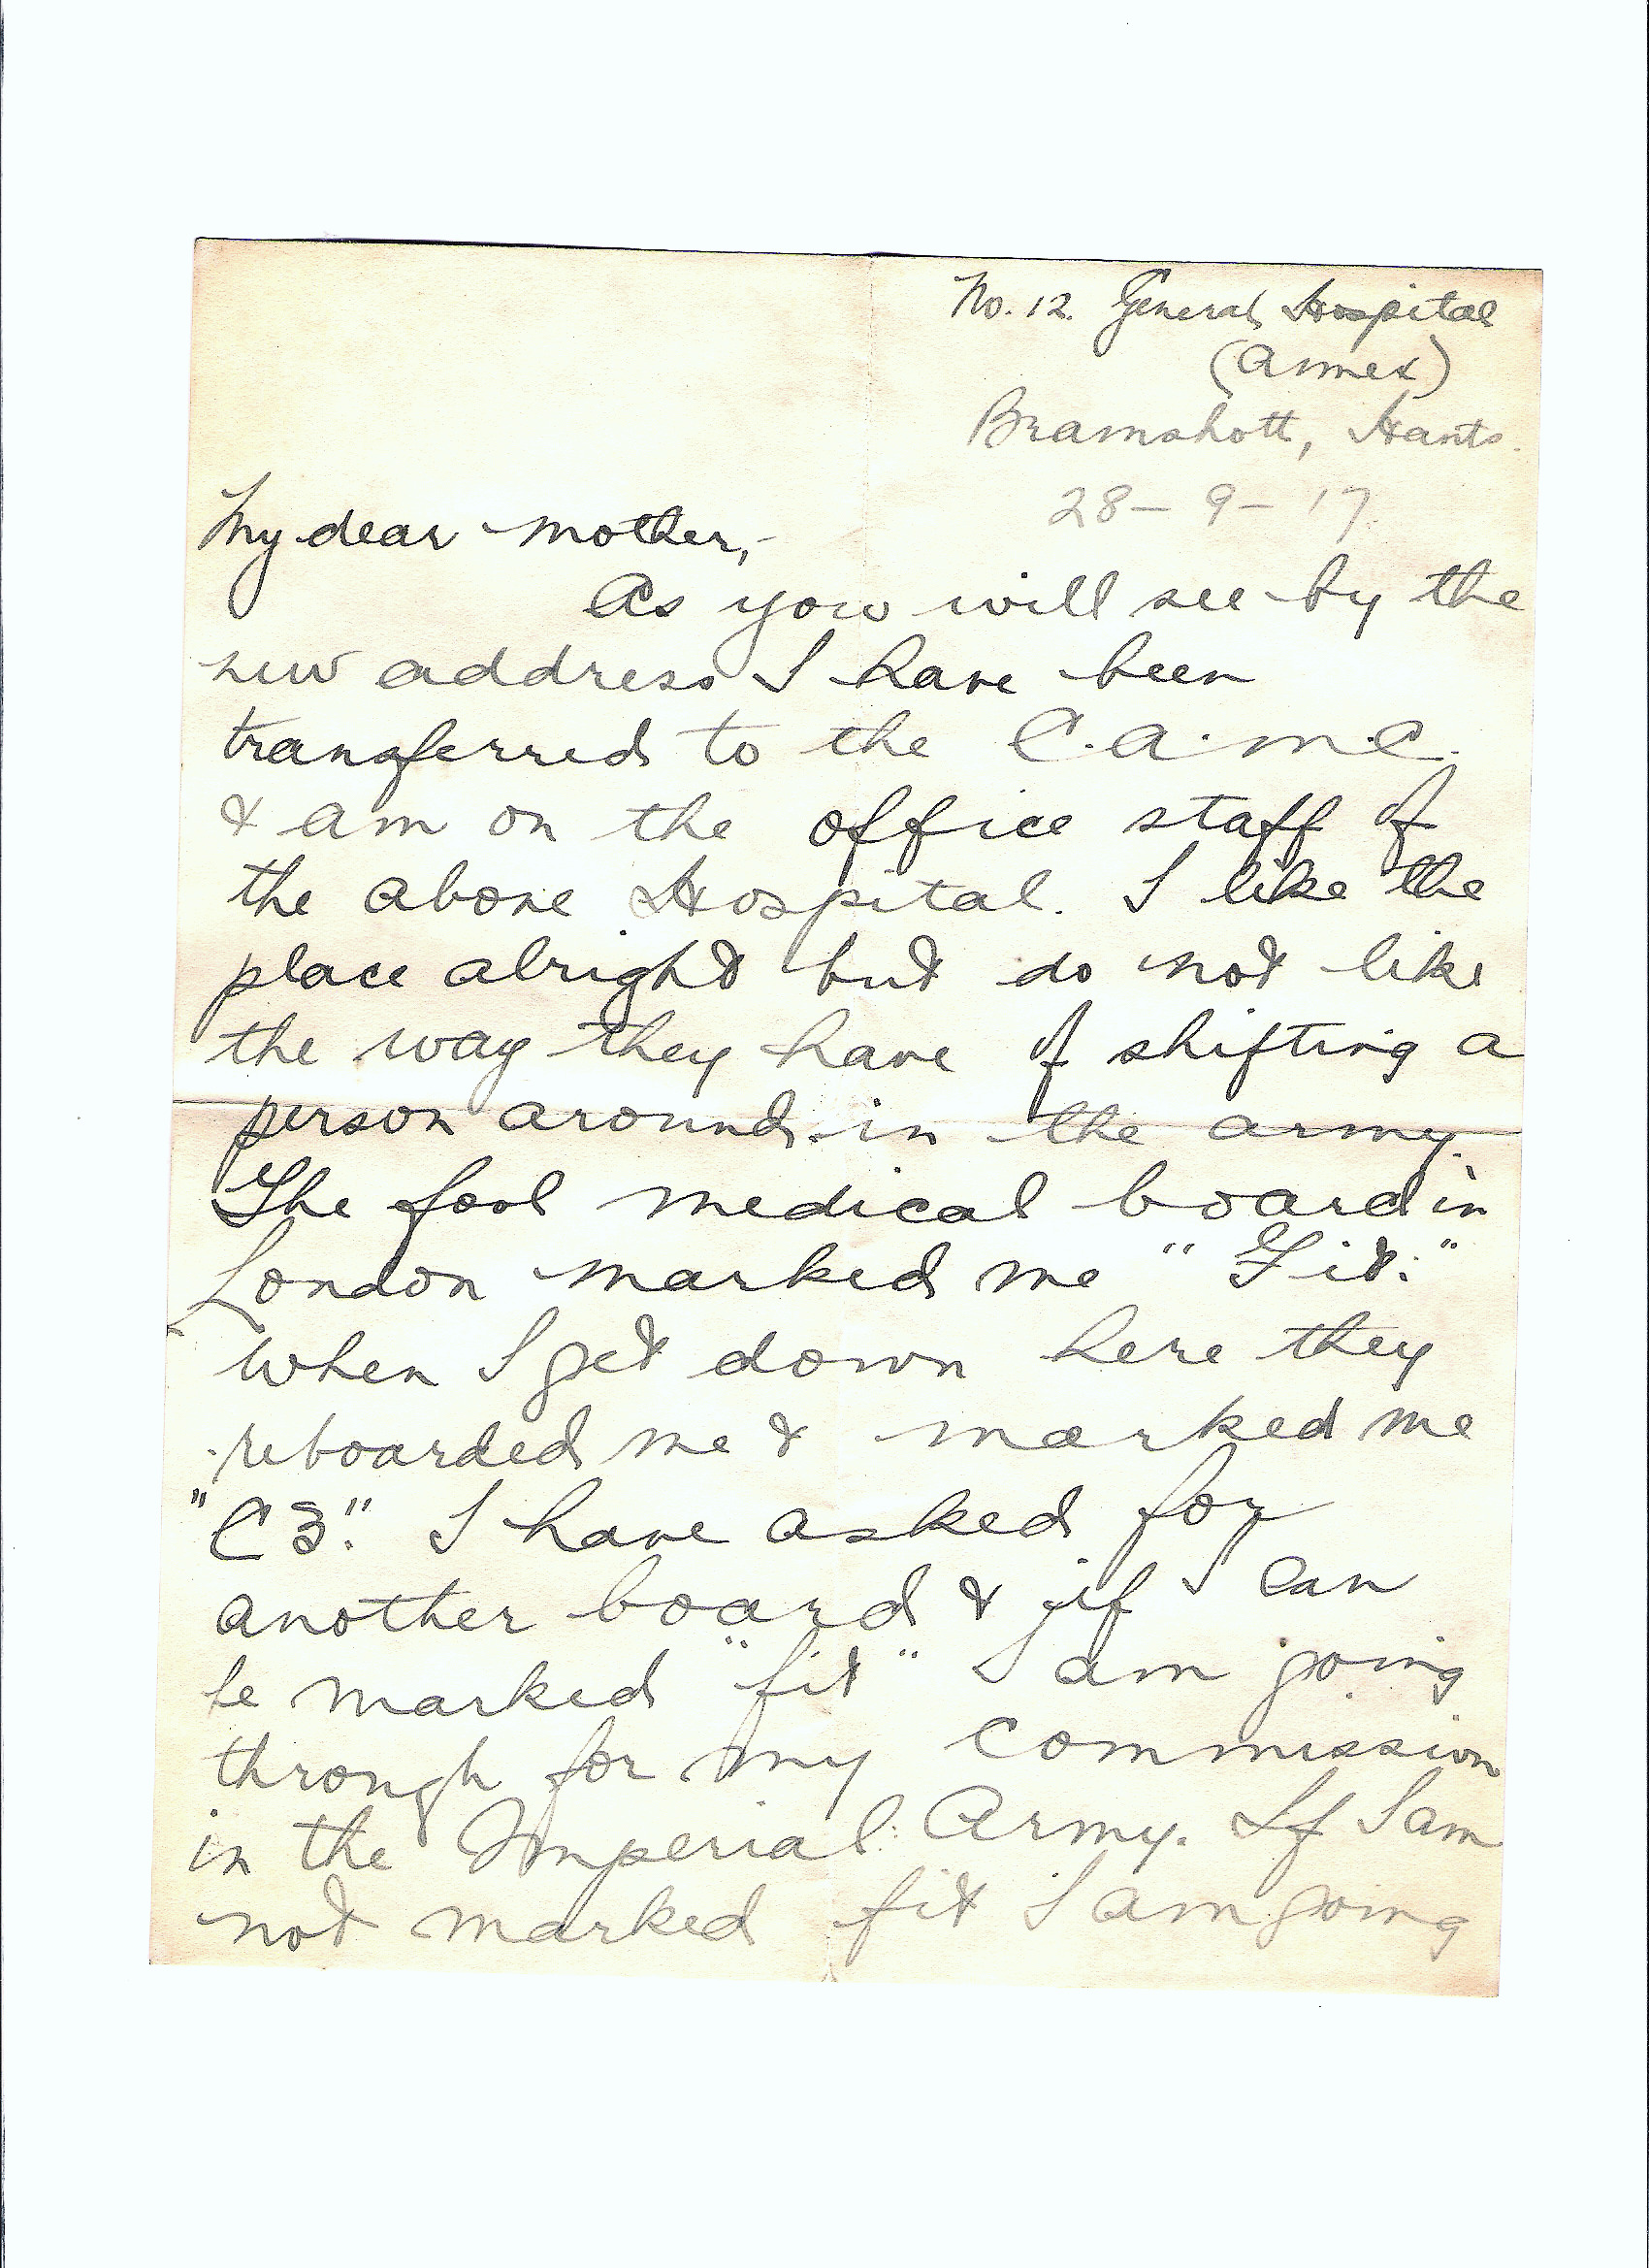 No. 12. General Hospital
(Annex)
Bramshott, Hants.
28-9-17
My dear Mother,-
As you will see by the
new address I have been
transferred to the C.A.M.C.
& am on the office staff of
the above Hospital. I like the
place alright but do not like
the way they have of shifting a
person around in the army.
The fool medical board in
London marked me "Fit."
when I get down here they
reboarded me & marked me
"C3." I have asked for
another board & if I can
be marked "fit" I am going
through for my commission
in the Imperial Army. If I am
not marked fit I am going